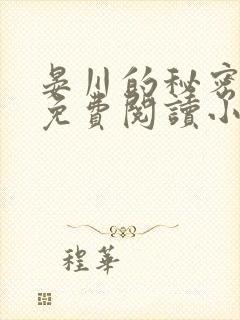 晏川的秘密
免費閱讀小
程華